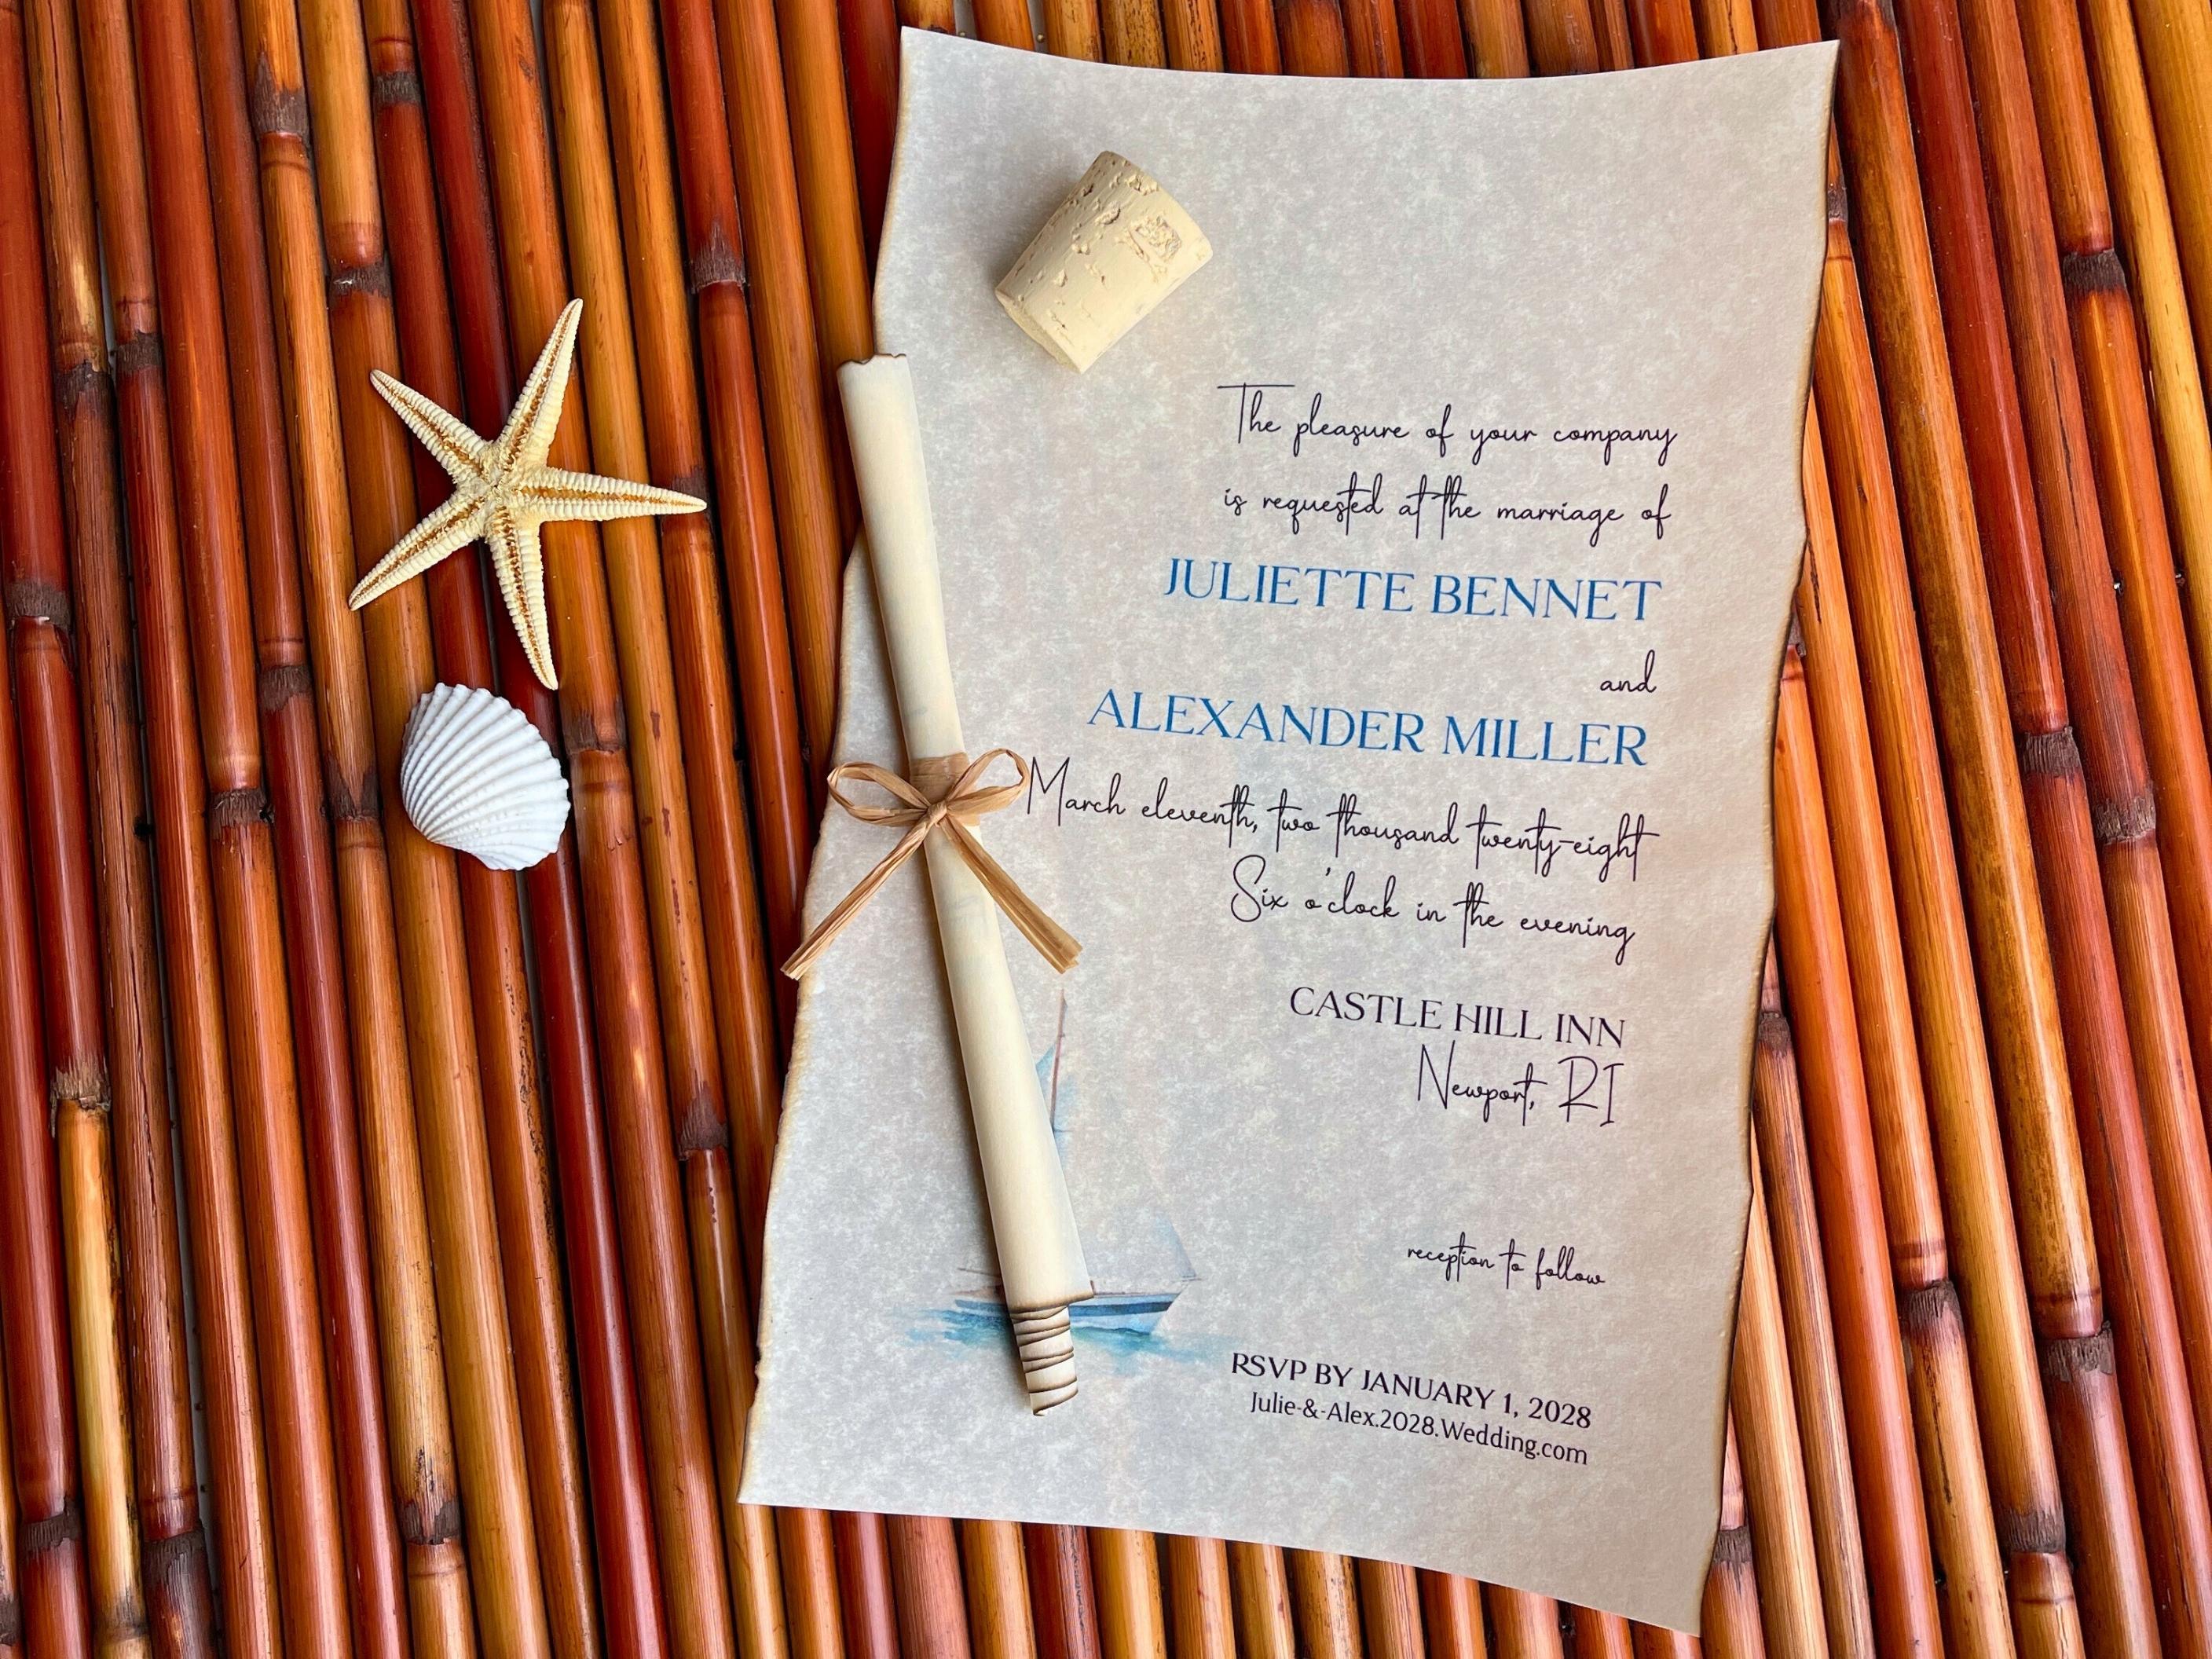 The pleasure of your company
is requested at the marriage of
JULIETTE BENNET
and
ALEXANDER MILLER
March eleventh, two thousand twenty-eight
Six o'clock in the evening
CASTLE HILL INN
Newport, RI
reception to follow
RSVP BY JANUARY 1, 2028
Julie-&-Alex.2028.Wedding.com